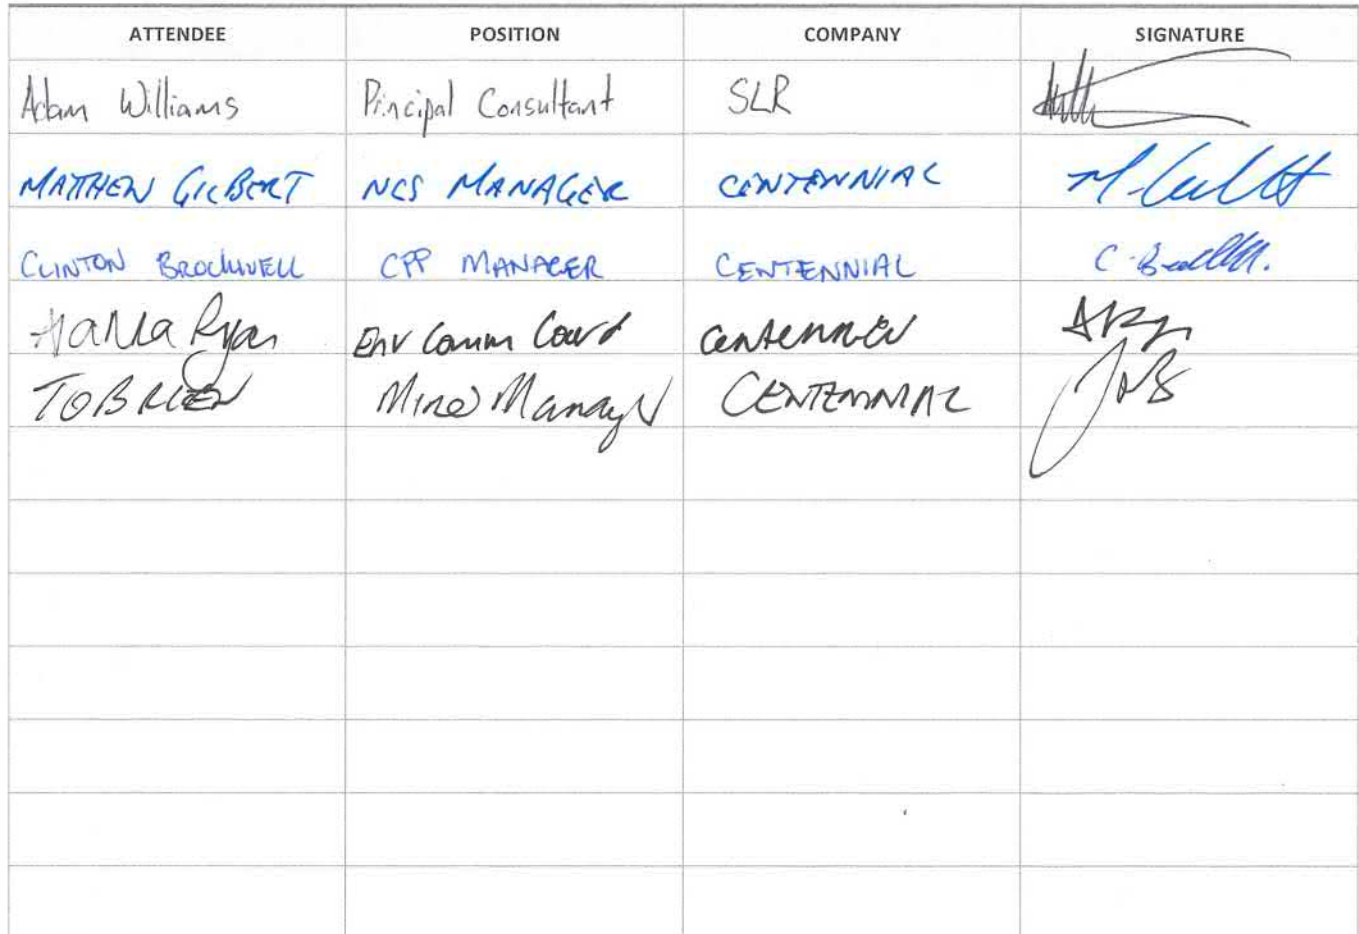 ATTENDEE POSITION COMPANY SIGNATURE
Adam Williams Principal Consultant SLR
MATTHEW GILBERT NCS MANAGER CENTENNIAL
CLINTON BROCKWELL CPP MANAGER CENTENNIAL
Ryan Env Comm Coord Centennial
T OBRIEN Mine Manager CENTENNIAL